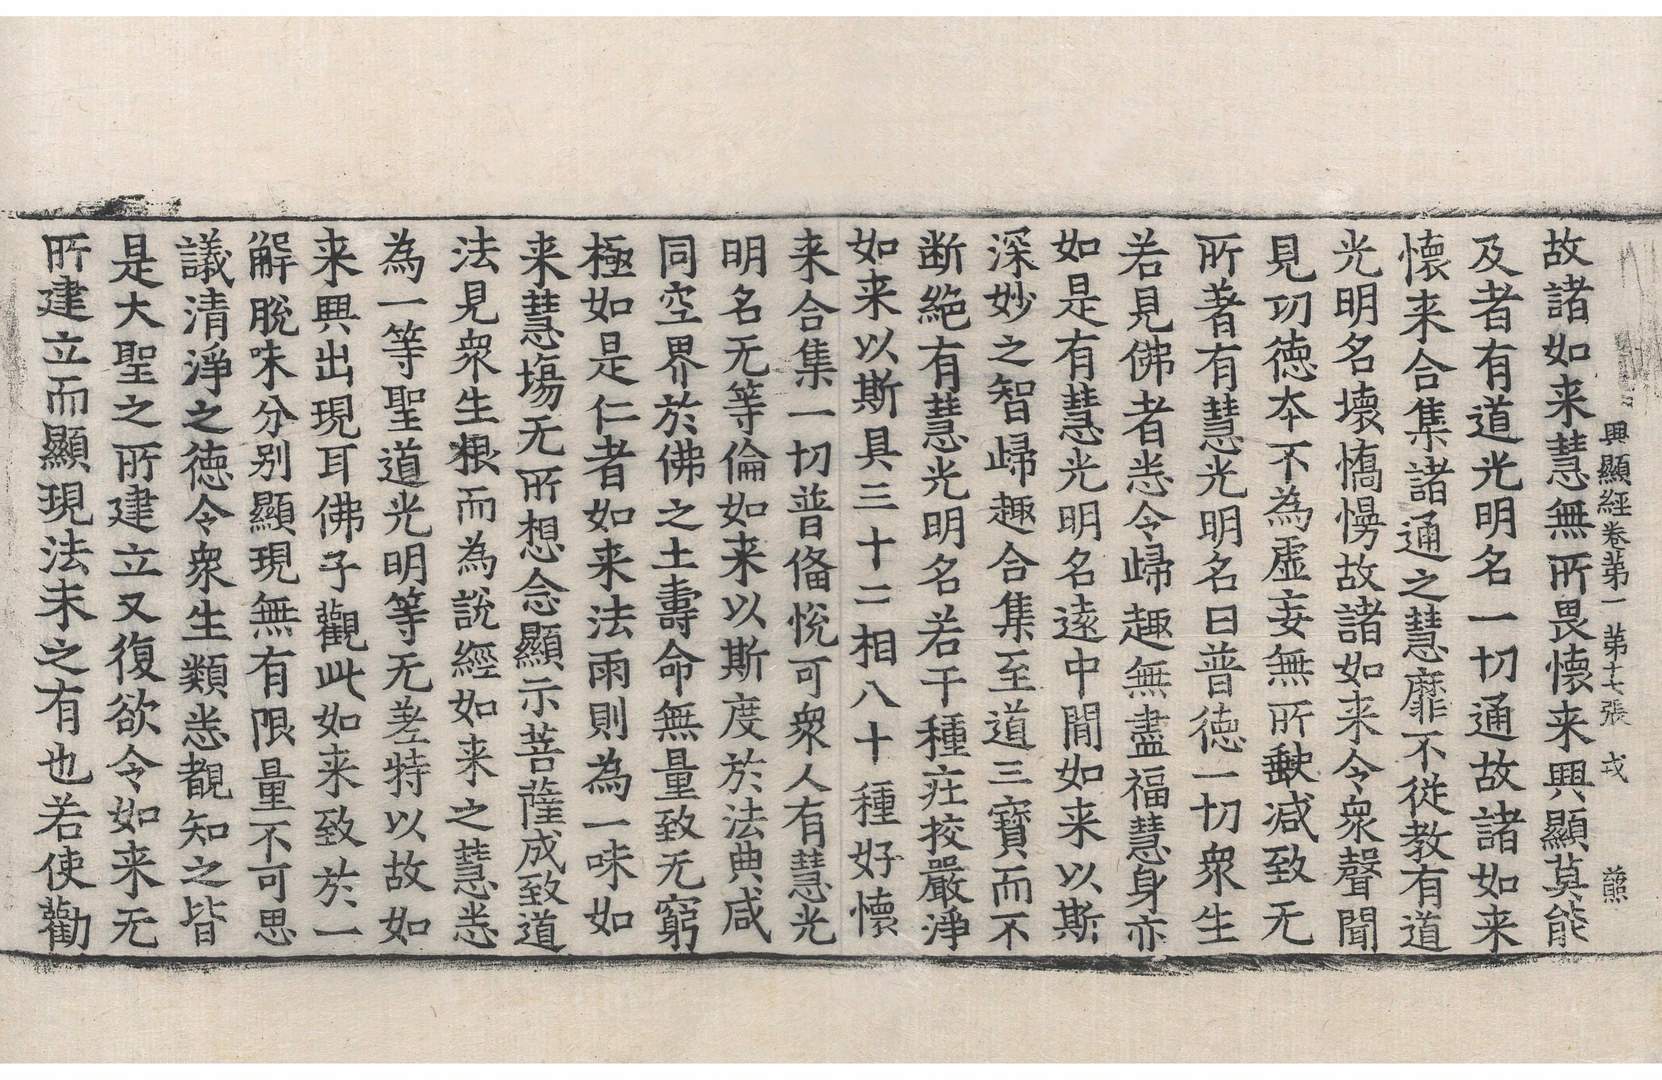 興顯經卷第一 第十七張 戎 薰
故諸如来慧無所畏懷来興顯莫能
及者有道光明名一切通故諸如来
懷来合集諸通之慧靡不從教有道
光明名壞憍慢故諸如来令衆聲聞
見功徳本不為虛妄無所缺减致无
所著有慧光明名曰普徳一切衆生
若見佛者悉令歸趣無盡福慧身亦
如是有慧光明名遠中間如来以斯
深妙之智歸趣合集至道三寶而不
断絶有慧光明名若干種莊挍嚴淨
如来以斯具三十二相八十種好懷
来合集一切普俻悅可衆人有慧光
明名无等倫如来以斯度於法典咸
同空界於佛之土壽命無量致无窮
極如是仁者如来法雨則為一味如
来慧塲无所想念顯示菩薩成致道
法見衆生根而為說經如来之慧悉
為一等聖道光明等无差特以故如
来興出現耳佛子觀此如来致於一
解脫味分別顯現無有限量不可思
議清淨之徳令衆生類悉覩知之皆
是大聖之所建立又復欲令如来无
所建立而顯現法未之有也若使勸